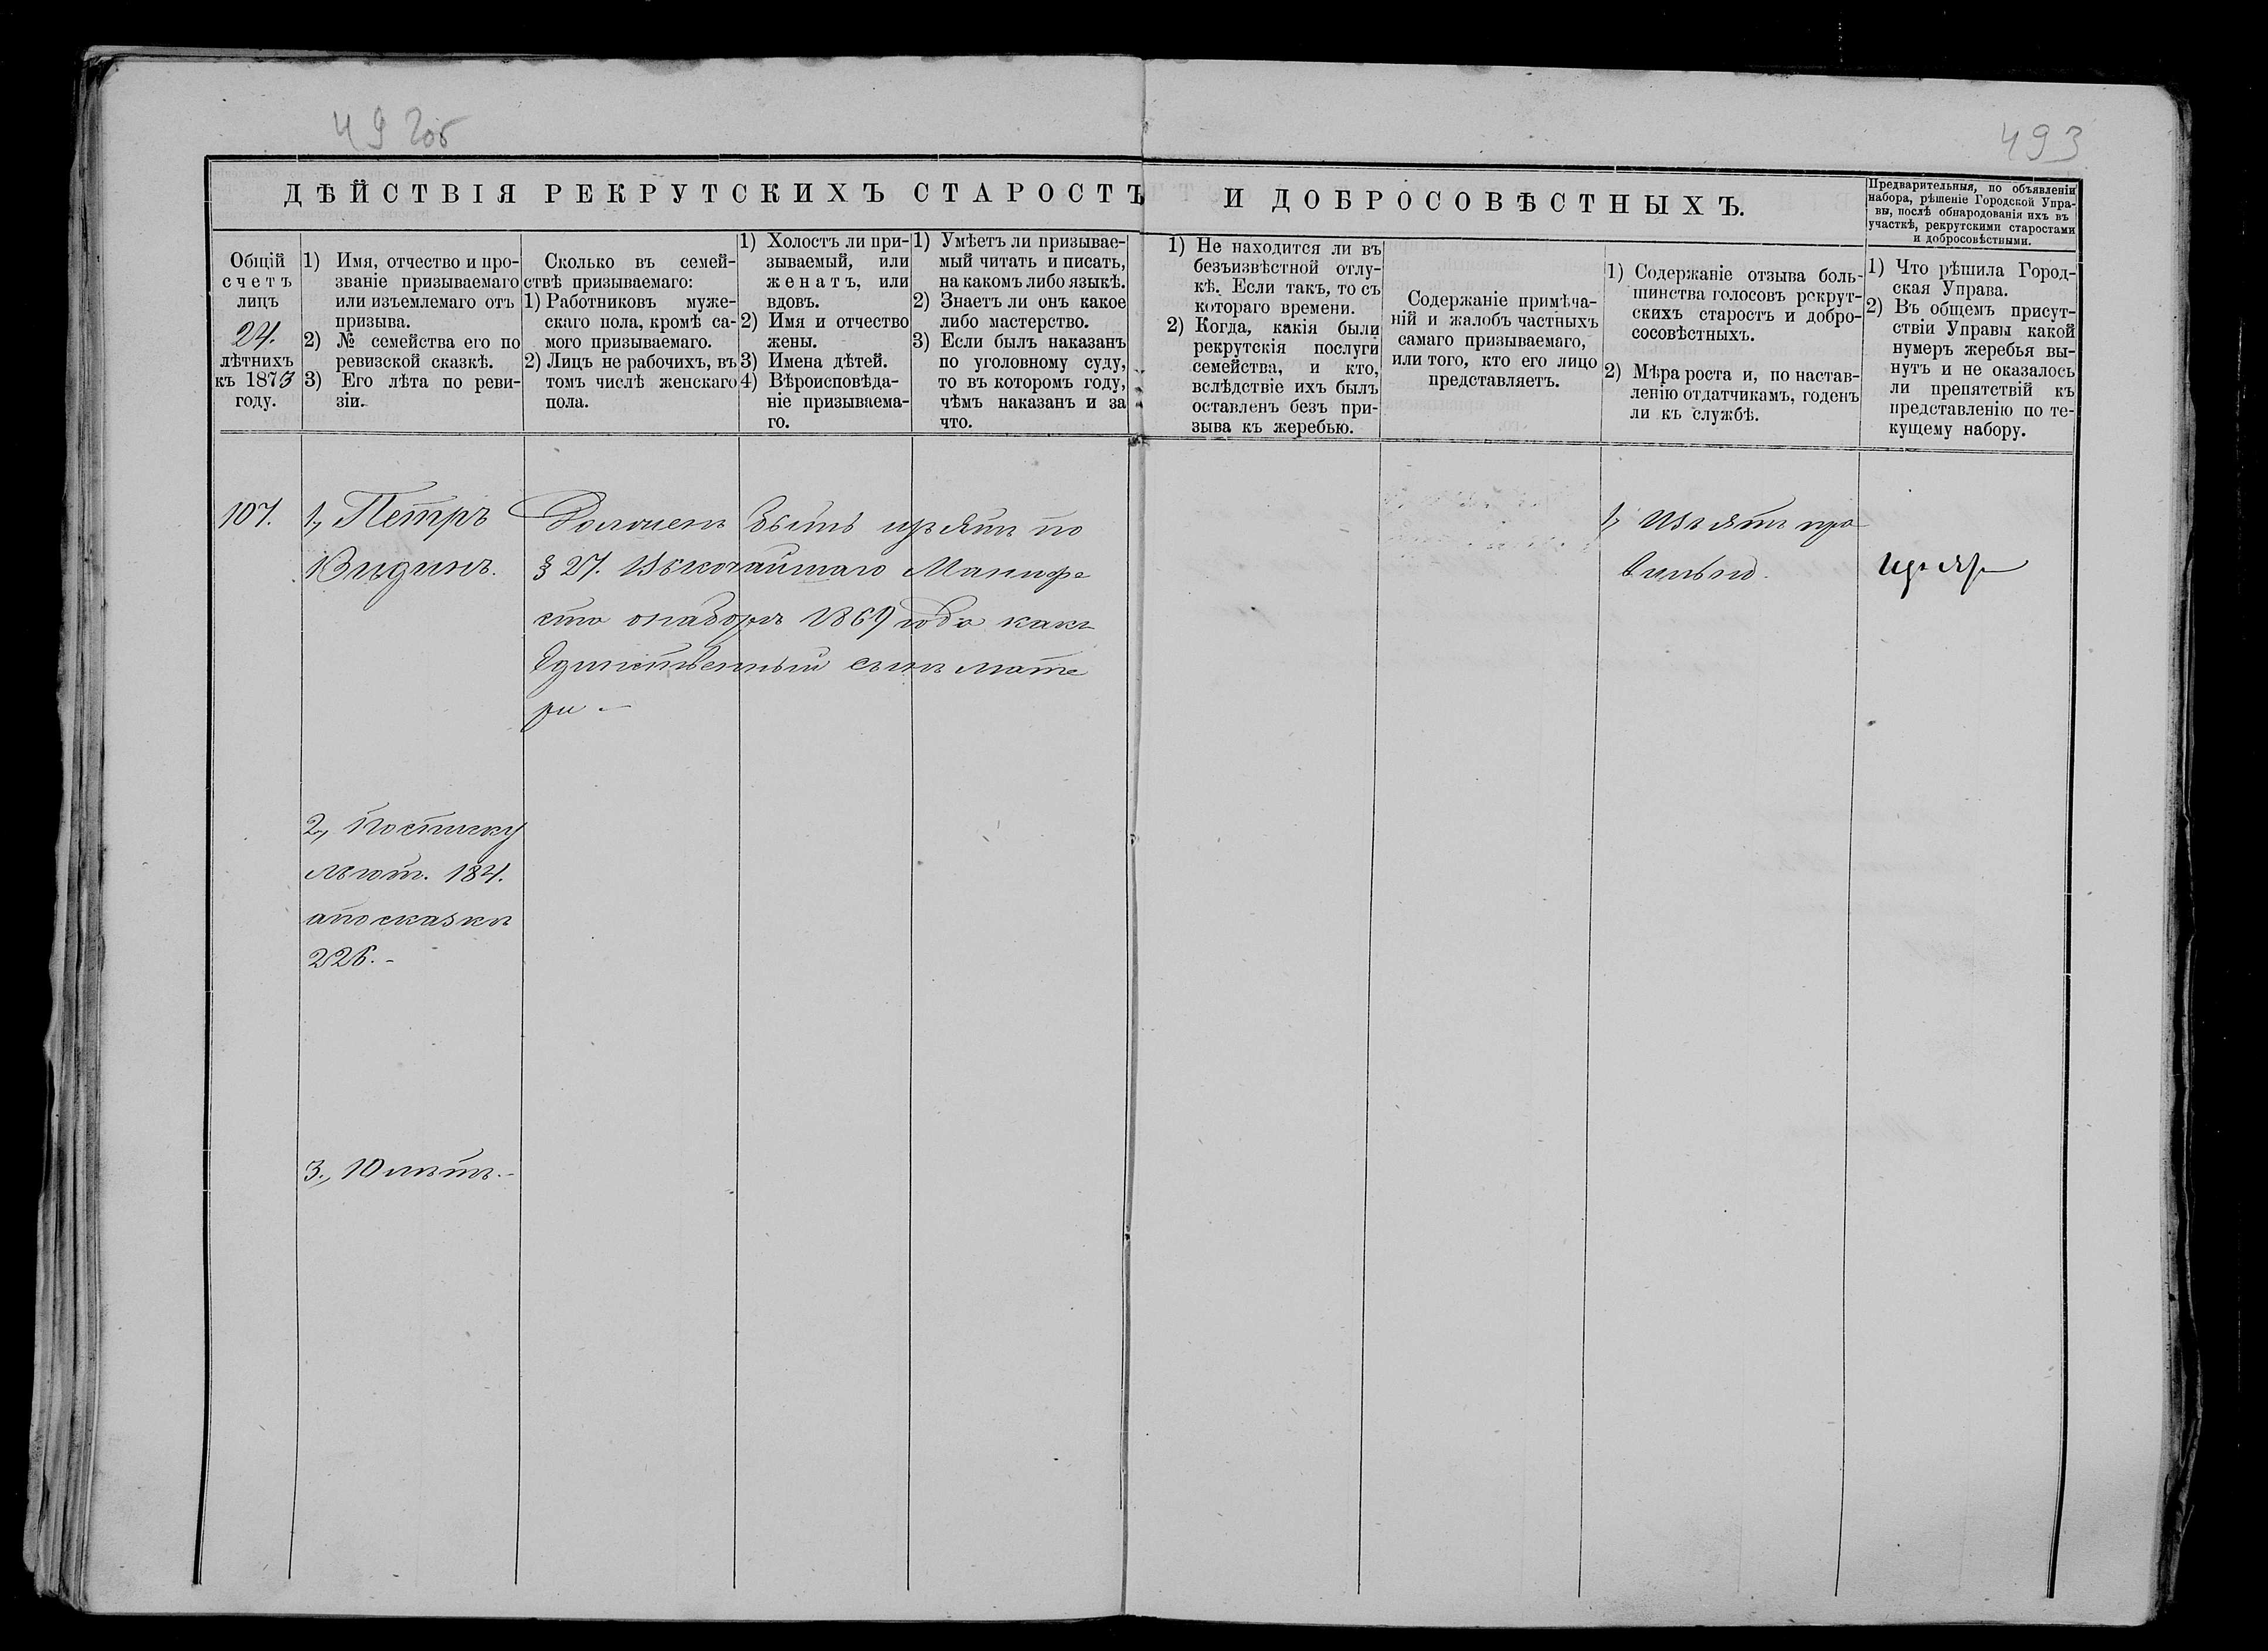 492об
493
ДѢЙСТВІЯ РЕКРУТСКИХЪ СТАРОСТЪ И ДОБРОСОВѢСТНЫХЪ.
Предварительныя, по объявленіи
набора, рѣшеніе Городской Упра-
вы, послѣ обнародованія ихъ въ
участкѣ, рекрутскими старостами
и добросовѣстными.
Общій
счетъ
лицъ
24.
лѣтнихъ
къ 1873
году.
1) Имя, отчество и про-
званіе призываемаго
или изъемлемаго отъ
призыва.
2) № семейства его по
ревизской сказкѣ.
3) Его лѣта по реви-
зіи.
Сколько въ семей-
ствѣ призываемаго:
1) Работниковъ муже-
скаго пола, кромѣ са-
мого призываемаго.
2) Лицъ не рабочихъ, въ
томъ числѣ женскаго
пола.
1) Холостъ ли при-
зываемый, или
женатъ, или
вдовъ.
2) Имя и отчество
жены.
3) Имена дѣтей.
4) Вѣроисповѣда-
ніе призываема-
го.
1) Умѣетъ ли призывае-
мый читать и писать,
на какомъ либо языкѣ.
2) Знаетъ ли онъ какое
либо мастерство.
3) Если былъ наказанъ
по уголовному суду,
то въ которомъ году,
чѣмъ наказанъ и за
что.
1) Не находится ли въ
безъизвѣстной отлу-
кѣ. Если такъ, то съ
котораго времени.
2) Когда, какія были
рекрутскія послуги
семейства, и кто,
вслѣдствіе ихъ былъ
оставленъ безъ при-
зыва къ жеребью.
Содержаніе примѣча-
ній и жалобъ частныхъ
самаго призываемаго,
или того, кто его лицо
представляетъ.
1) Содержаніе отзыва боль-
шинства голосовъ рекрут-
скихъ старостъ и добро-
сосовѣстныхъ.
2) Мѣра роста и, по настав-
ленію отдатчикамъ, годенъ
ли къ службѣ.
1) Что рѣшила Город-
ская Управа.
2) Въ общемъ присут-
ствіи Управы какой
нумеръ жеребья вы-
нутъ и не оказалось
ли препятствій къ
представленію по те-
кущему набору.
107.
1, Петръ
Видинъ.
Долженъ быть изъятъ по
§ 27. Высочайшаго Манифе
ста о наборѣ 1869 года какъ
Единственный сынъ мате
ри. —
1, Изъятъ пра
вильно.
Изъят
2, По списку
184.
а по сказкѣ
226. -
3, 10 лѣтъ. -